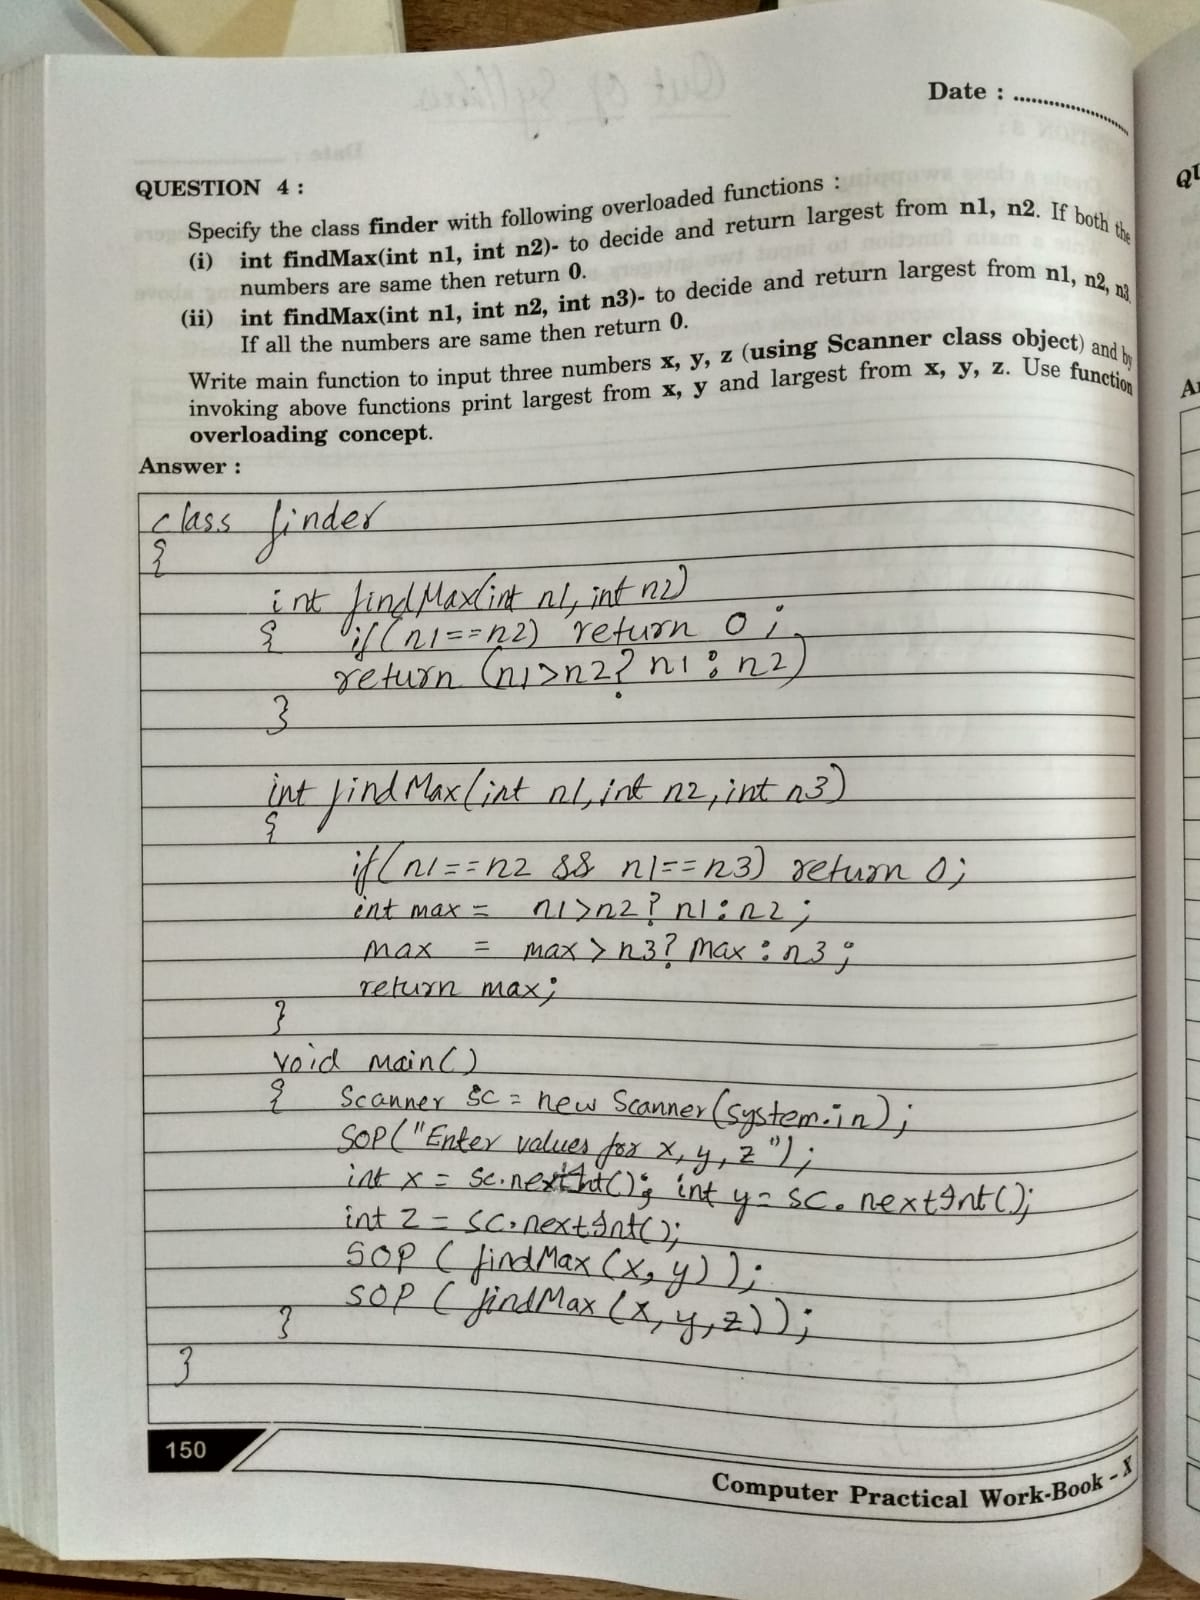 Date : ....................
QUESTION 4 :
Specify the class finder with following overloaded functions :
(i) int findMax(int n1, int n2)- to decide and return largest from n1, n2. If both the
numbers are same then return 0.
(ii) int findMax(int n1, int n2, int n3)- to decide and return largest from n1, n2, n3.
If all the numbers are same then return 0.
Write main function to input three numbers x, y, z (using Scanner class object) and by
invoking above functions print largest from x, y and largest from x, y, z. Use function
overloading concept.
Answer :
class finder
{
int findMax(int n1, int n2)
{ if(n1==n2) return 0;
return (n1>n2? n1 : n2)
}
int findMax(int n1, int n2, int n3)
{
if(n1==n2 && n1==n3) return 0;
int max = n1>n2? n1 : n2;
max = max > n3? max : n3;
return max;
}
void main()
{ Scanner sc = new Scanner(system.in);
SOP("Enter values for x, y, z");
int x = sc.nextInt(); int y = sc.nextInt();
int z = sc.nextInt();
SOP ( findMax (x, y) );
SOP ( findMax (x, y, z));
}
}
150
Computer Practical Work-Book - X